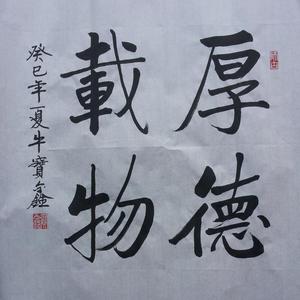 厚德
載物
癸巳年夏牛寶金鍾